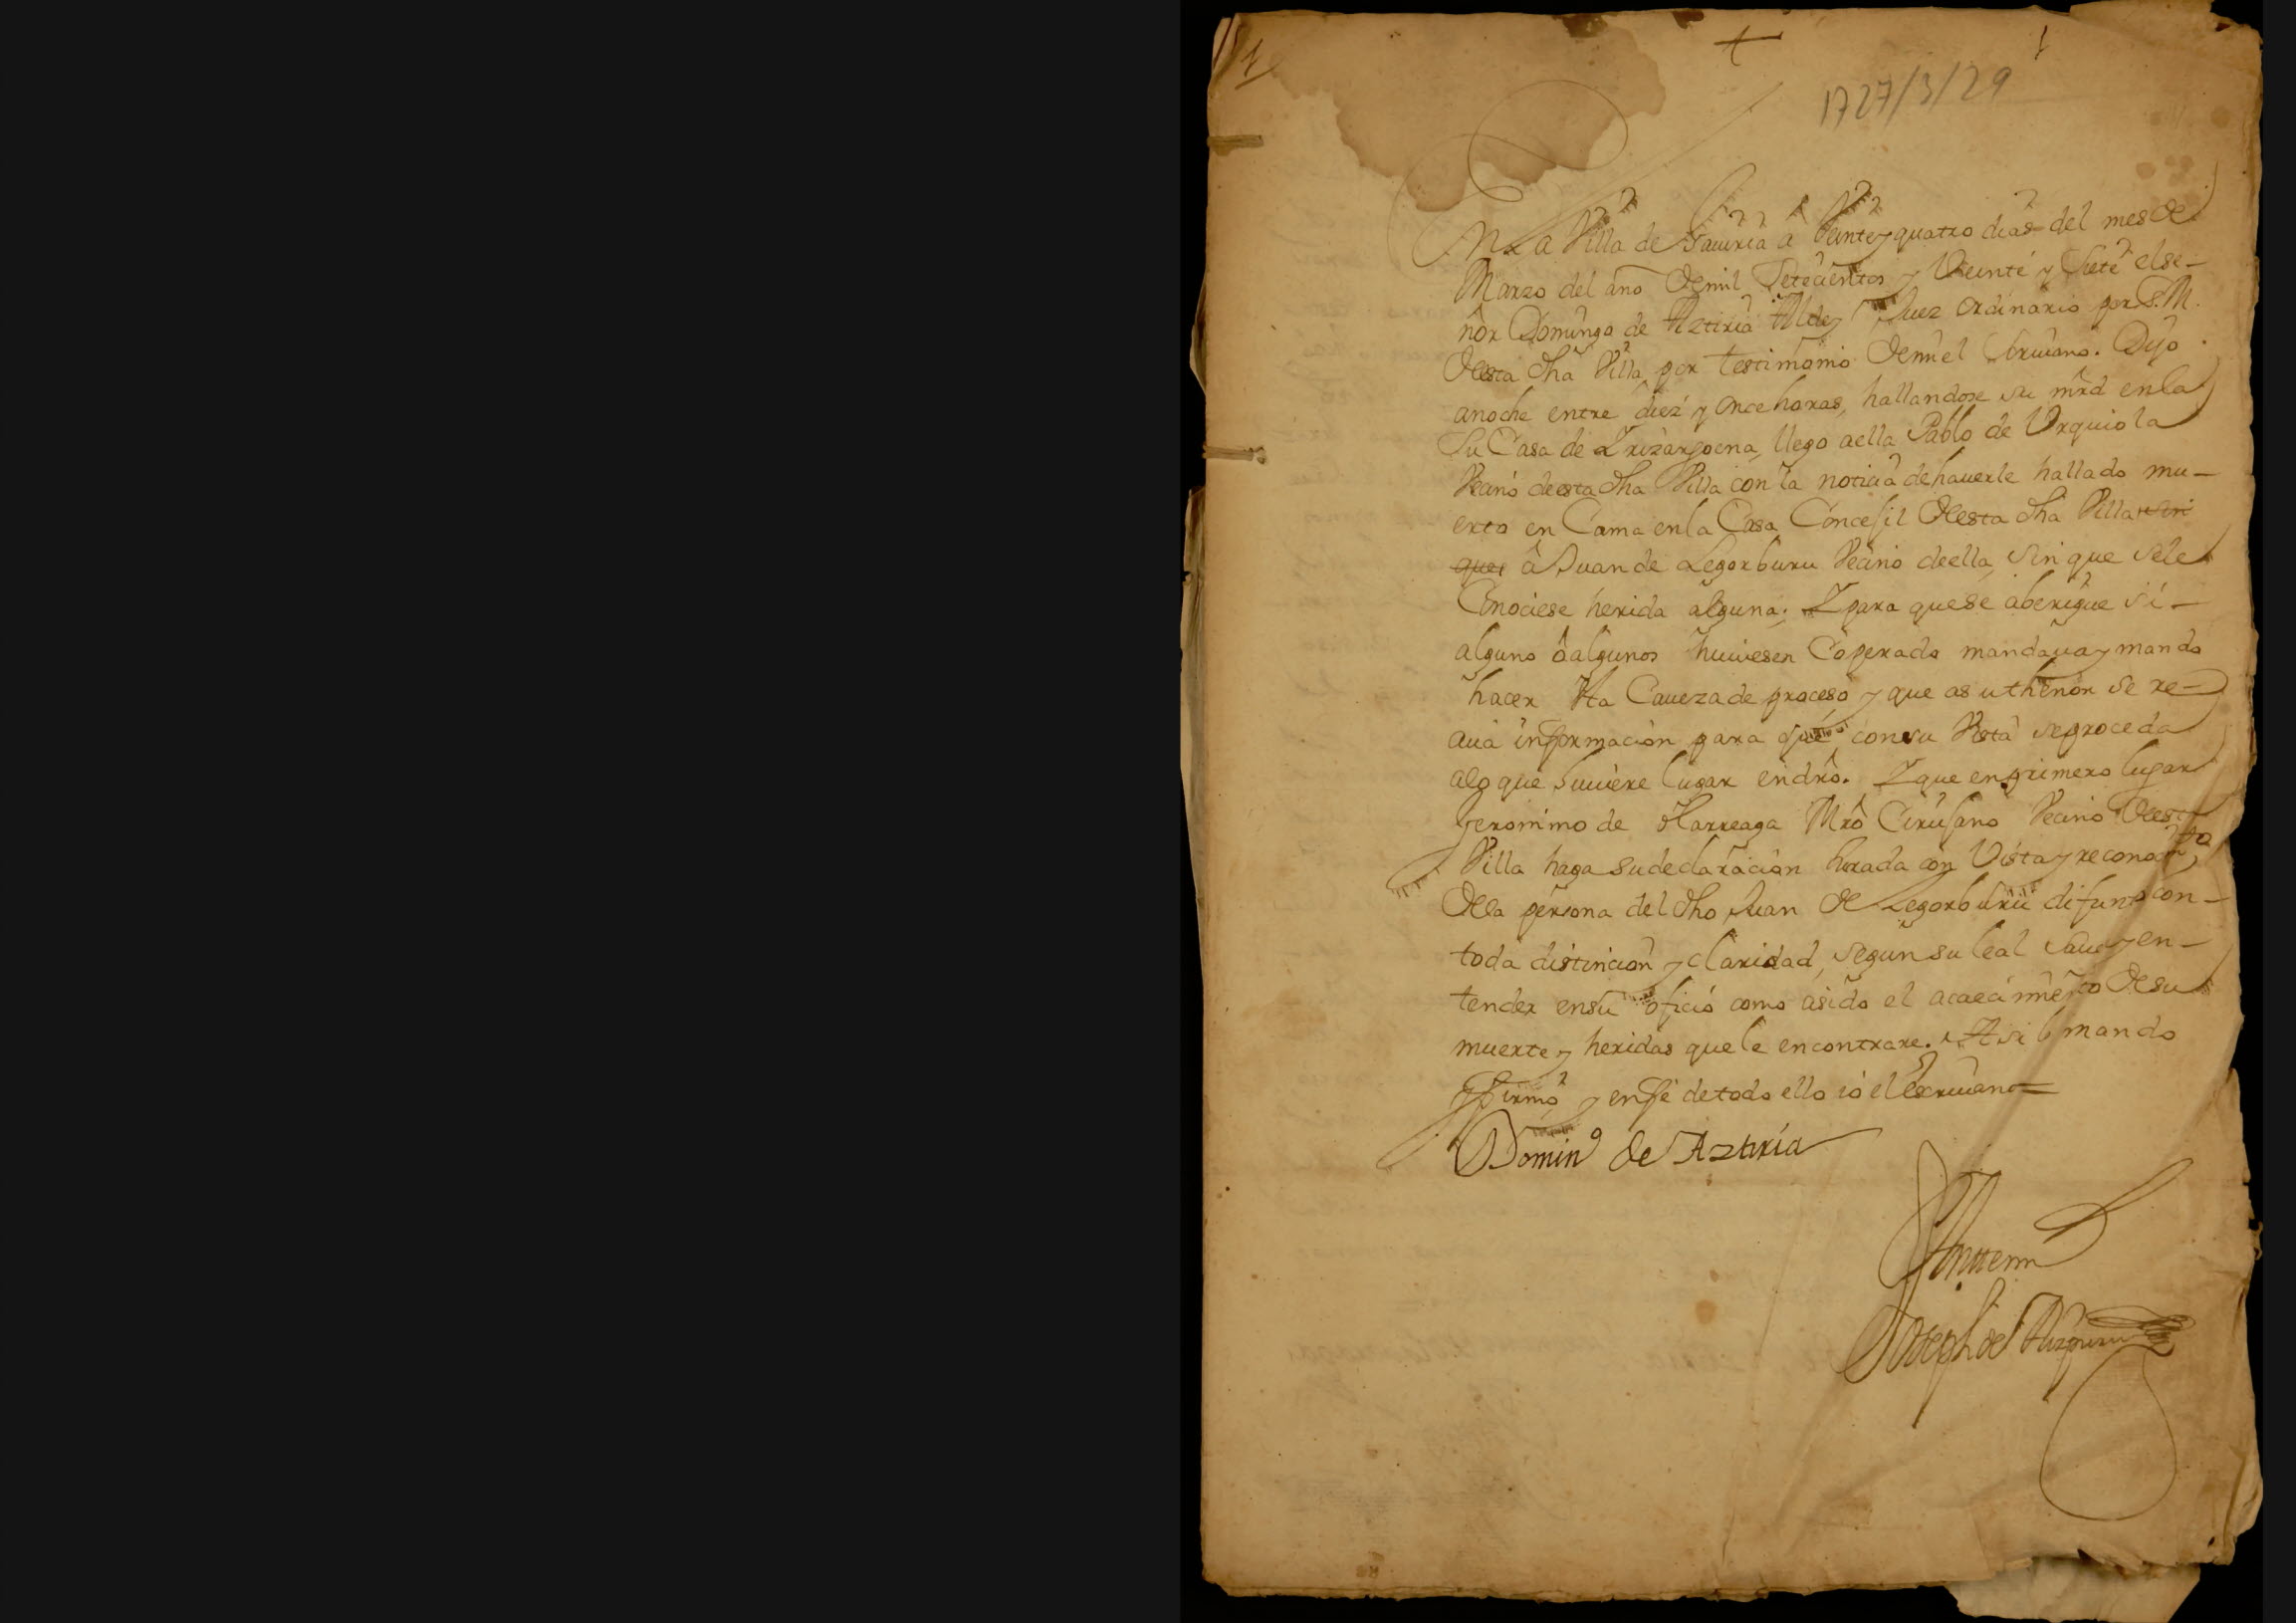 1
1
1727/3/29
En la Villa de Gaviria â Veinte y quatro dias del mes de
Marzo del año de mil Setecientos y Veinte y Siete el se-
ñor Domingo de Aztiria Alde y Juez ordinario por S. M.
desta dha Villa por testimonio de mi el Scrivano. Dijo
anoche entre diez y once horas, hallandose su mrd en la
Su Casa de Yrizargoena, llego a ella Pablo de Urquiola
Vecino de esta dha Villa con la noticia de haverle hallado mu-
erto en Cama en la Casa Concejil desta dha Villa sin
que â Juan de Legorburu Vecino de ella, sin que se le
Conociese herida alguna; Y para que se aberigue si-
alguno ô algunos huviesen Coperado mandava y mando
hacer Sta Caveza de proceso y que a su thenor se re-
civa informacion para que con su Vista se proceda
a lo que huviere lugar en dro. Y que en primero lugar
Jeronimo de Harreaga Mro Cirujano Vecino desta
Villa haga su declaracion Jurada con Vista y reconocimto
de la persona del dho Juan de Legorburu difunto con-
toda distincion y claridad, segun su leal Saver y en-
tender en su oficio como a sido el acaecimiento de su
muerte y heridas que le encontrare. Asi lo mando
y firmó y en fe de todo ello io el Escrivano
Domingo de Aztiria
Ante mi
Joseph de Aizpuru